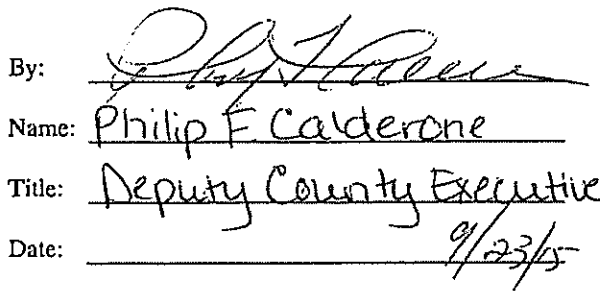 By:
Name: Philip F Calderone
Title: Deputy County Executive
Date: 9/23/15